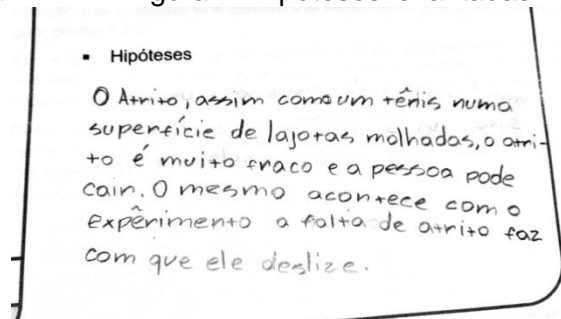 ▪ Hipóteses
O Atrito, assim como um tênis numa
superfície de lajotas molhadas, o atri-
to é muito fraco e a pessoa pode
cair. O mesmo acontece com o
expêrimento a falta de atrito faz
com que ele deslize.